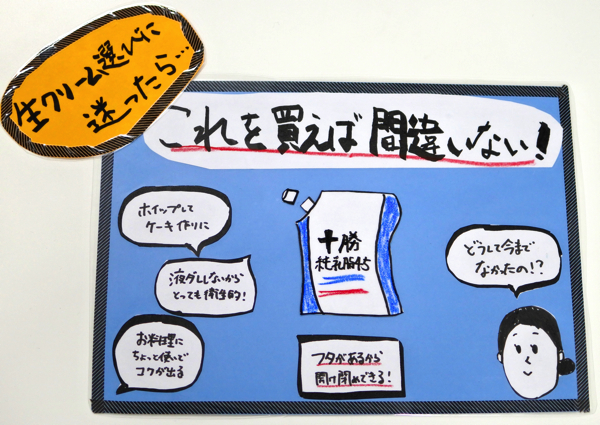 生クリーム選びに
迷ったら…
これを買えば間違いない!
ホイップして
ケーキ作りに
液ダレしないから
とっても衛生的!
お料理に
ちょっと使いで
コクが出る
十勝
純乳脂45
フタがあるから
開け閉めできる!
どうして今まで
なかったの!?